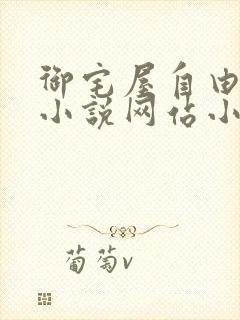 御宅屋自由
小说网佔小
葡萄v